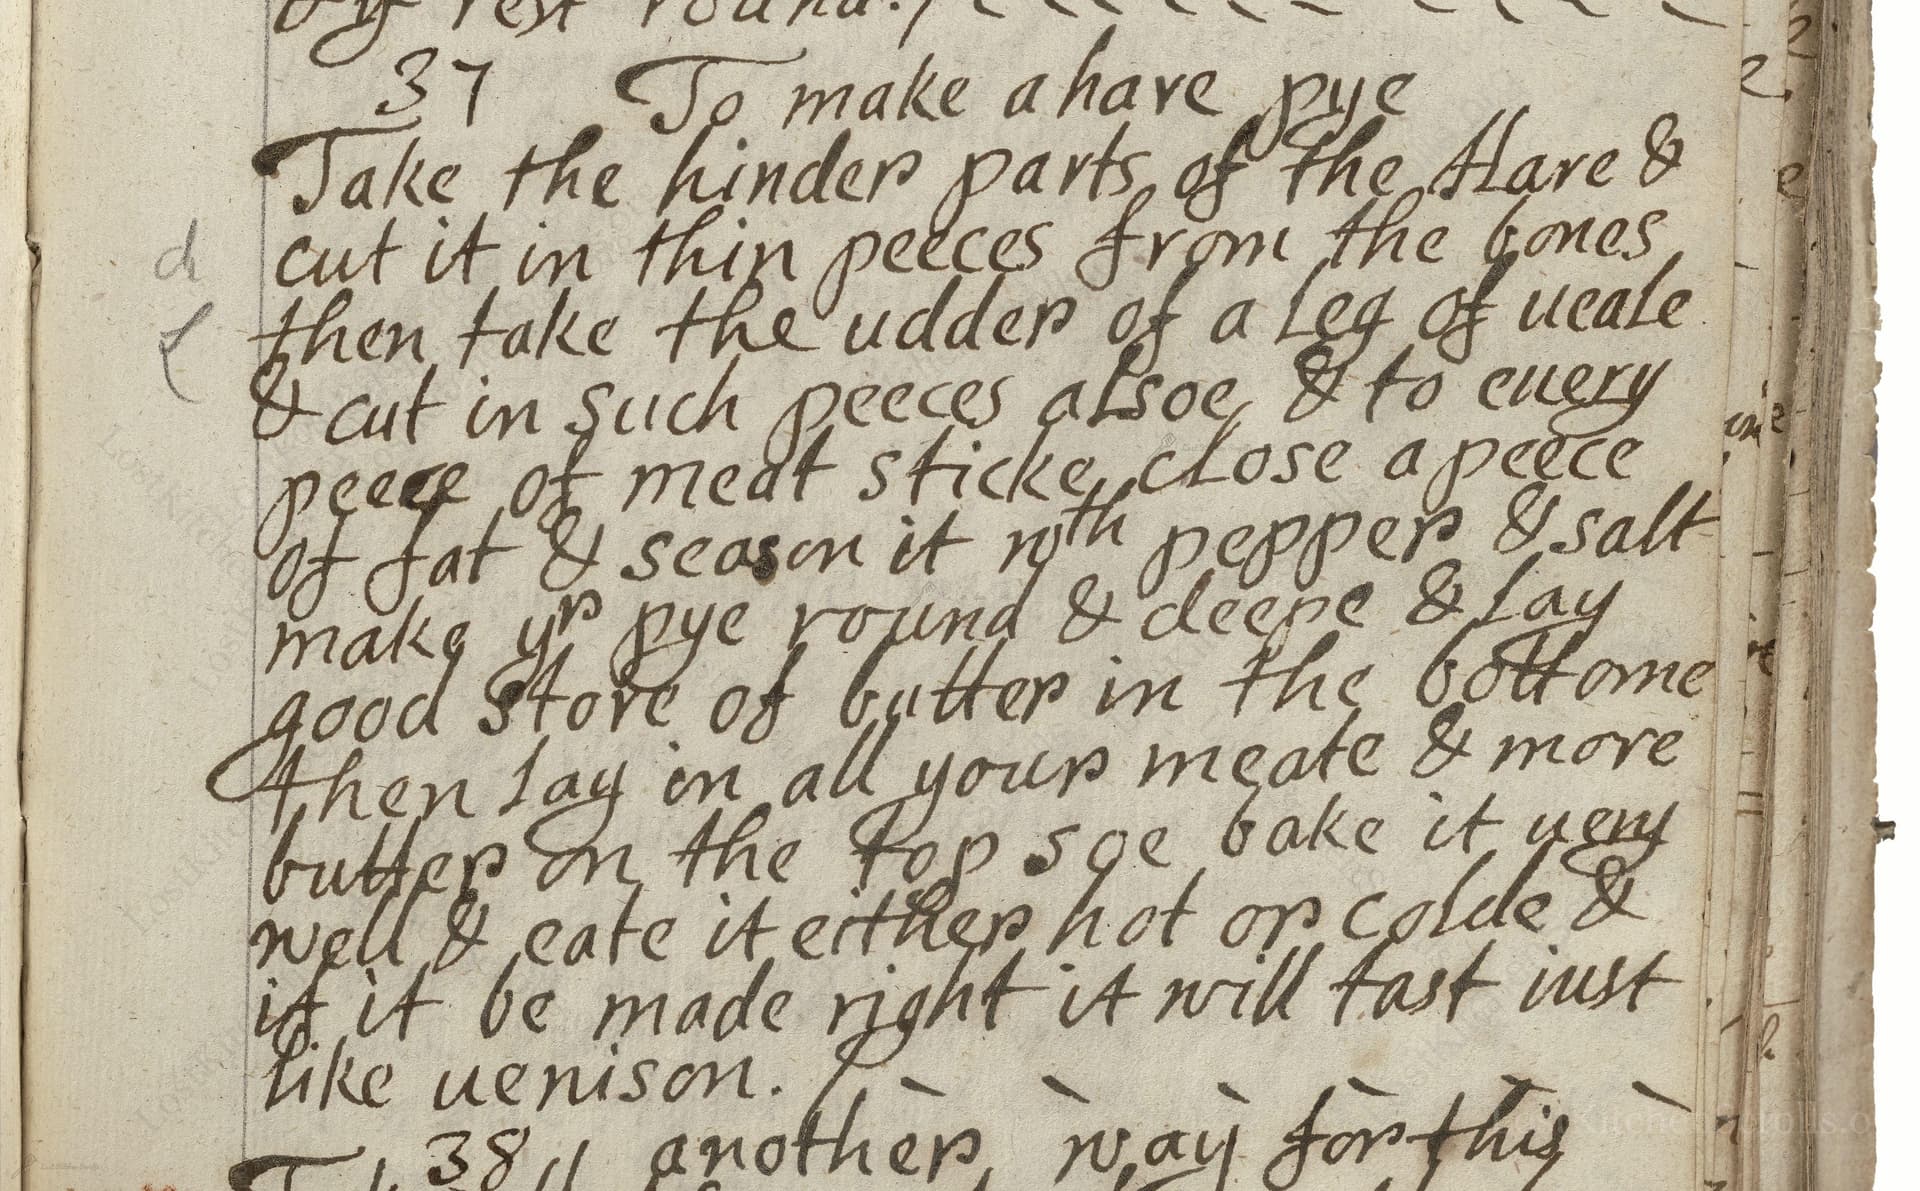 rest round./
37 To make a hare pye
Take the hinder parts of the Hare &
cut it in thin peeces from the bones
then take the udder of a Leg of ueale
& cut in such peeces alsoe, & to euery
peece of meat sticke close a peece
of fat & season it wth pepper & salt
make yr pye round & deepe & lay
good store of butter in the bottome
then lay in all your meate & more
butter on the top soe bake it uery
well & eate it either hot or colde &
if it be made right it will tast iust
like uenison.
38 another way for this